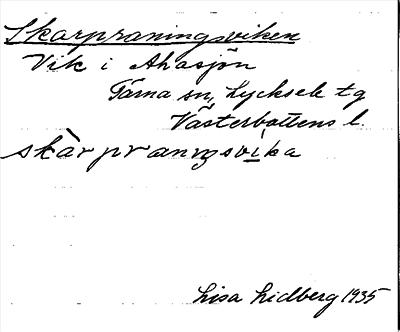 Skarpraningsviken
Vik i Ahasjön
Tärna sn, Lycksele tg
Västerbottens l.
skàrpranıŋsvi̱ka
Lisa Lidberg 1935